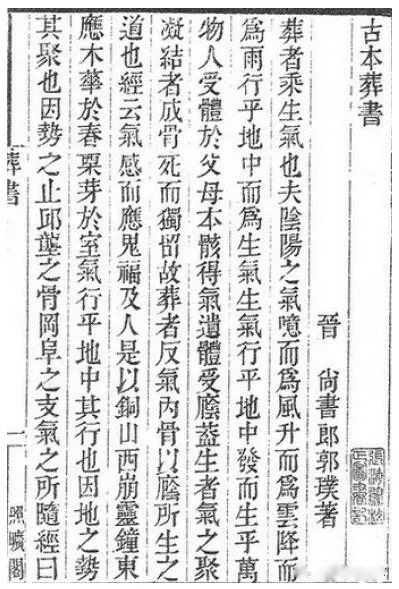 古本葬書
晉 尚書郎郭璞著
葬者乘生氣也夫陰陽之氣噫而爲風升而爲雲降而
爲雨行乎地中而爲生氣生氣行乎地中發而生乎萬
物人受體於父母本骸得氣遺體受廕蓋生者氣之聚
凝結者成骨死而獨留故葬者反氣內骨以廕所生之
道也經云氣感而應鬼福及人是以銅山西崩靈鐘東
應木華於春栗芽於室氣行乎地中其行也因地之勢
其聚也因勢之止邱壟之骨岡阜之支氣之所隨經曰
葬書 一 照曠閣